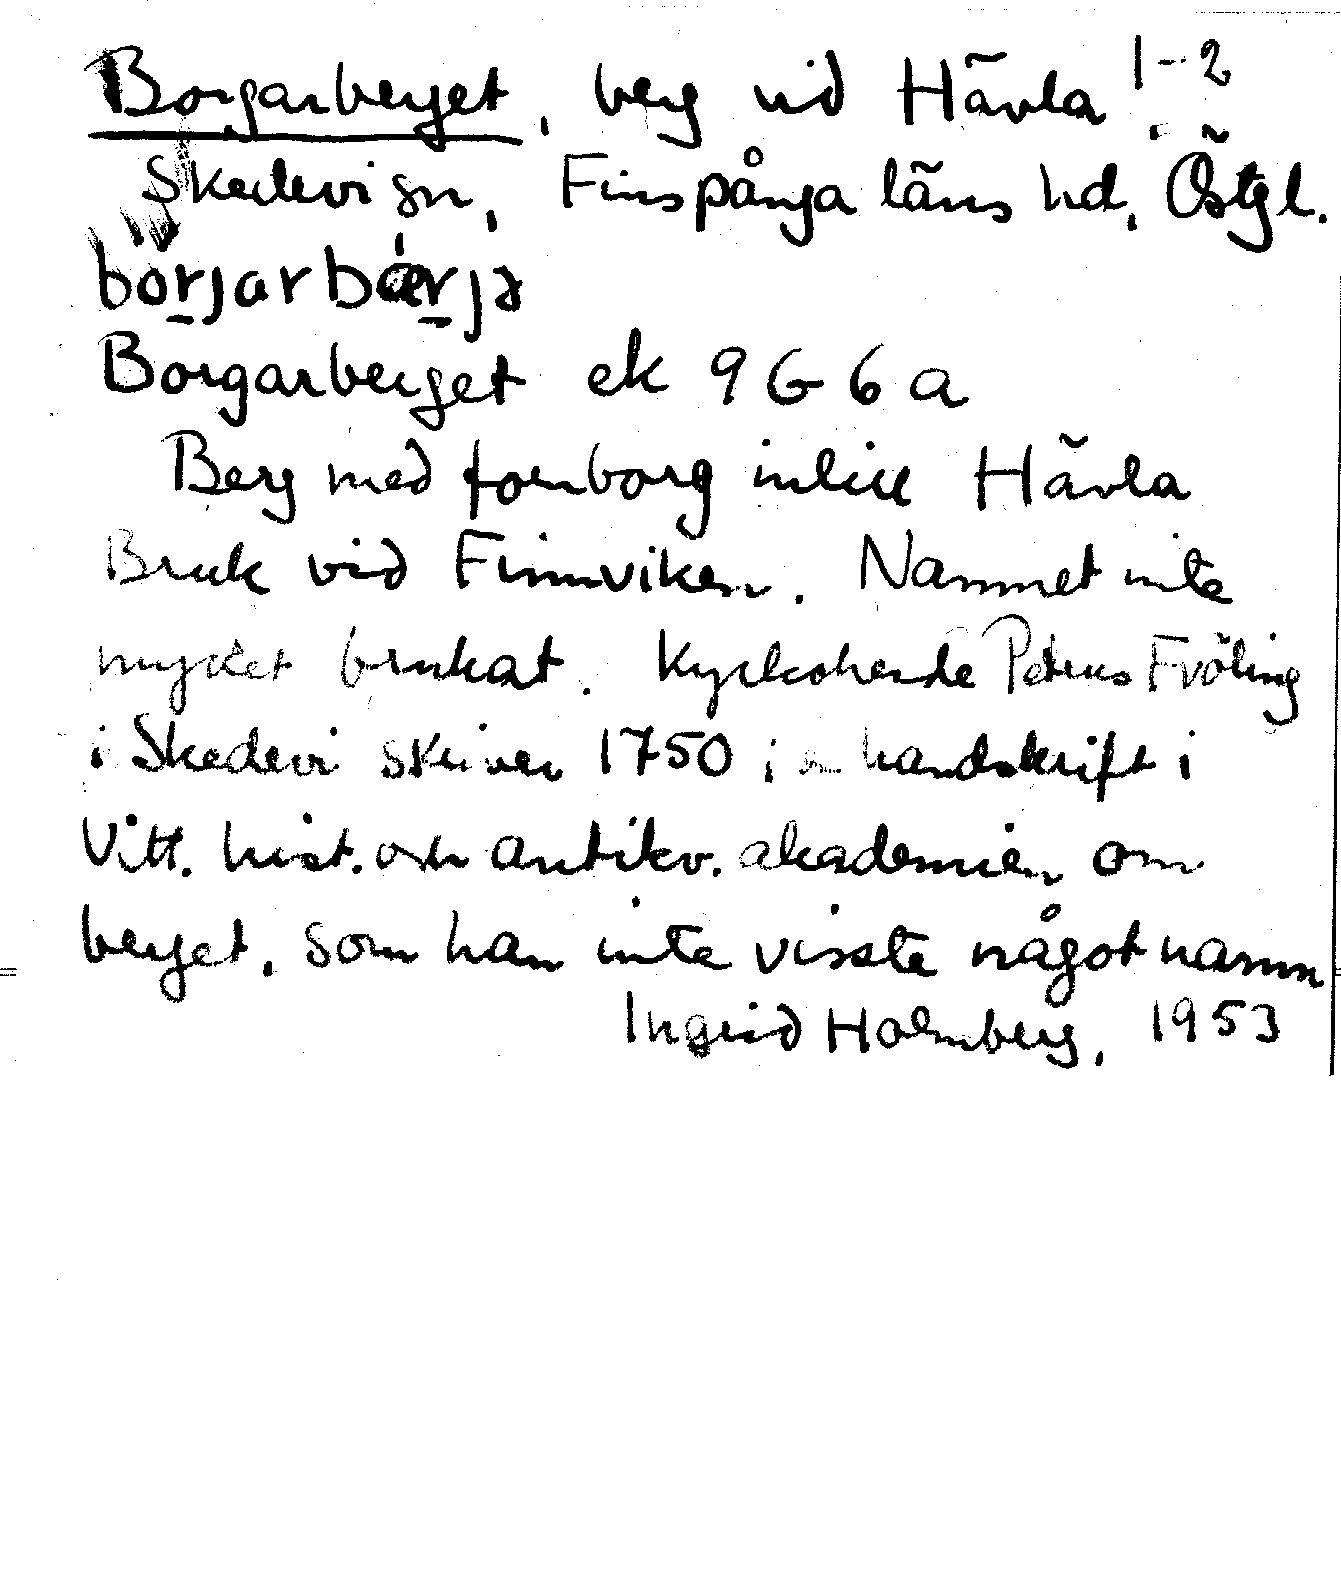 Borgarberget, berg vid Hävla 1-2,
Skedevi sn, Finspånga läns hd, Östgl.
börjarbærjə
Borgarberget ek 9G6a
Berg med fornborg intill Hävla
Bruk vid Finnviken. Namnet inte
mycket brukat. Kyrkoherde Petrus Fröling
i Skedevi skriver 1750 i en handskrift i
Vitt. hist. och antikv. akademien om
berget, som han inte visste något namn
Ingrid Holmberg, 1953